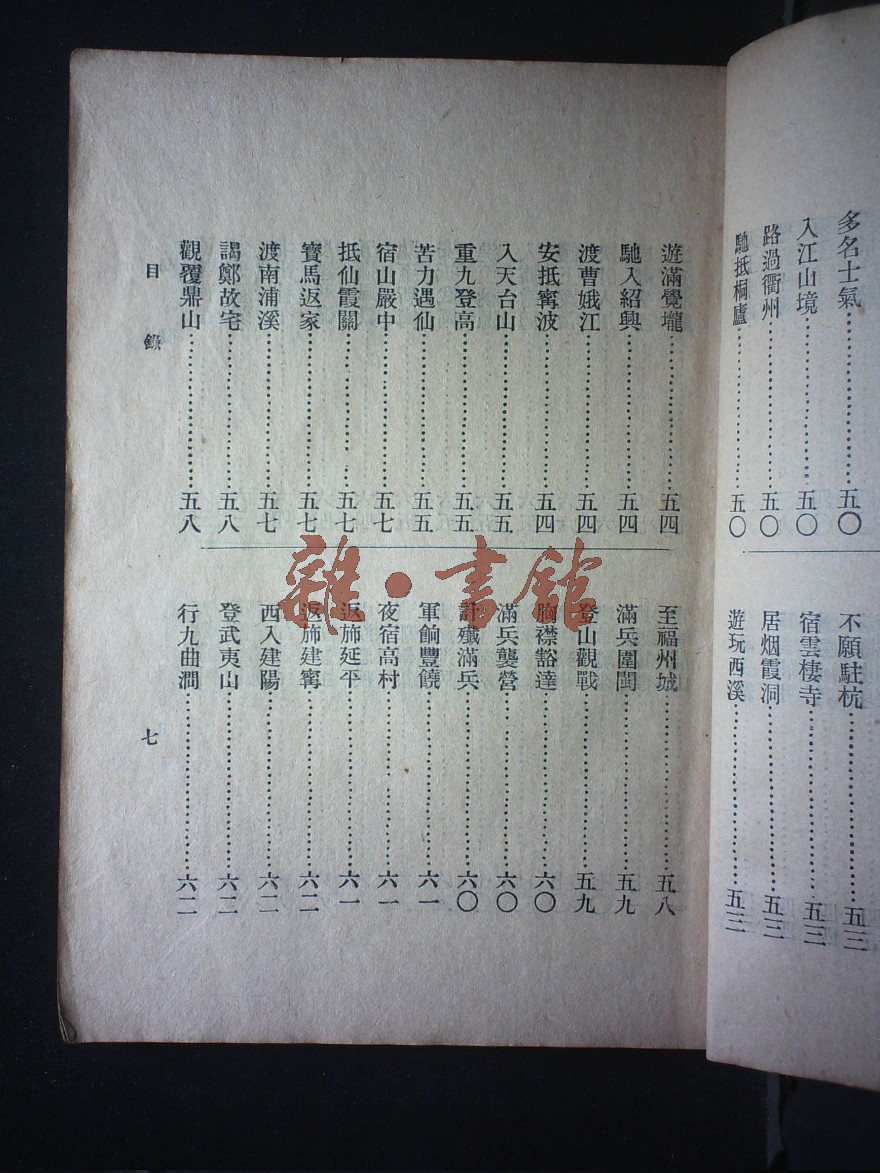 多名士氣…………五〇
入江山境…………五〇
路過衢州…………五〇
馳抵桐廬…………五〇
不願駐杭…………五三
宿雲棲寺…………五三
居烟霞洞…………五三
遊玩西溪…………五三
遊滿覺壠…………五四
馳入紹興…………五四
渡曹娥江…………五四
安抵寗波…………五四
入天台山…………五五
重九登高…………五五
苦力遇仙…………五五
宿山嚴中…………五七
抵仙霞關…………五七
寶馬返家…………五七
渡南浦溪…………五七
謁鄭故宅…………五八
觀覆鼎山…………五八
至福州城…………五八
滿兵圍閩…………五九
登山觀戰…………五九
胸襟豁達…………六〇
滿兵襲營…………六〇
計殲滿兵…………六〇
軍餉豐饒…………六一
夜宿高村…………六一
返斾延平…………六一
返斾建寗…………六二
西入建陽…………六二
登武夷山…………六二
行九曲澗…………六二
目錄
七
雜·書館